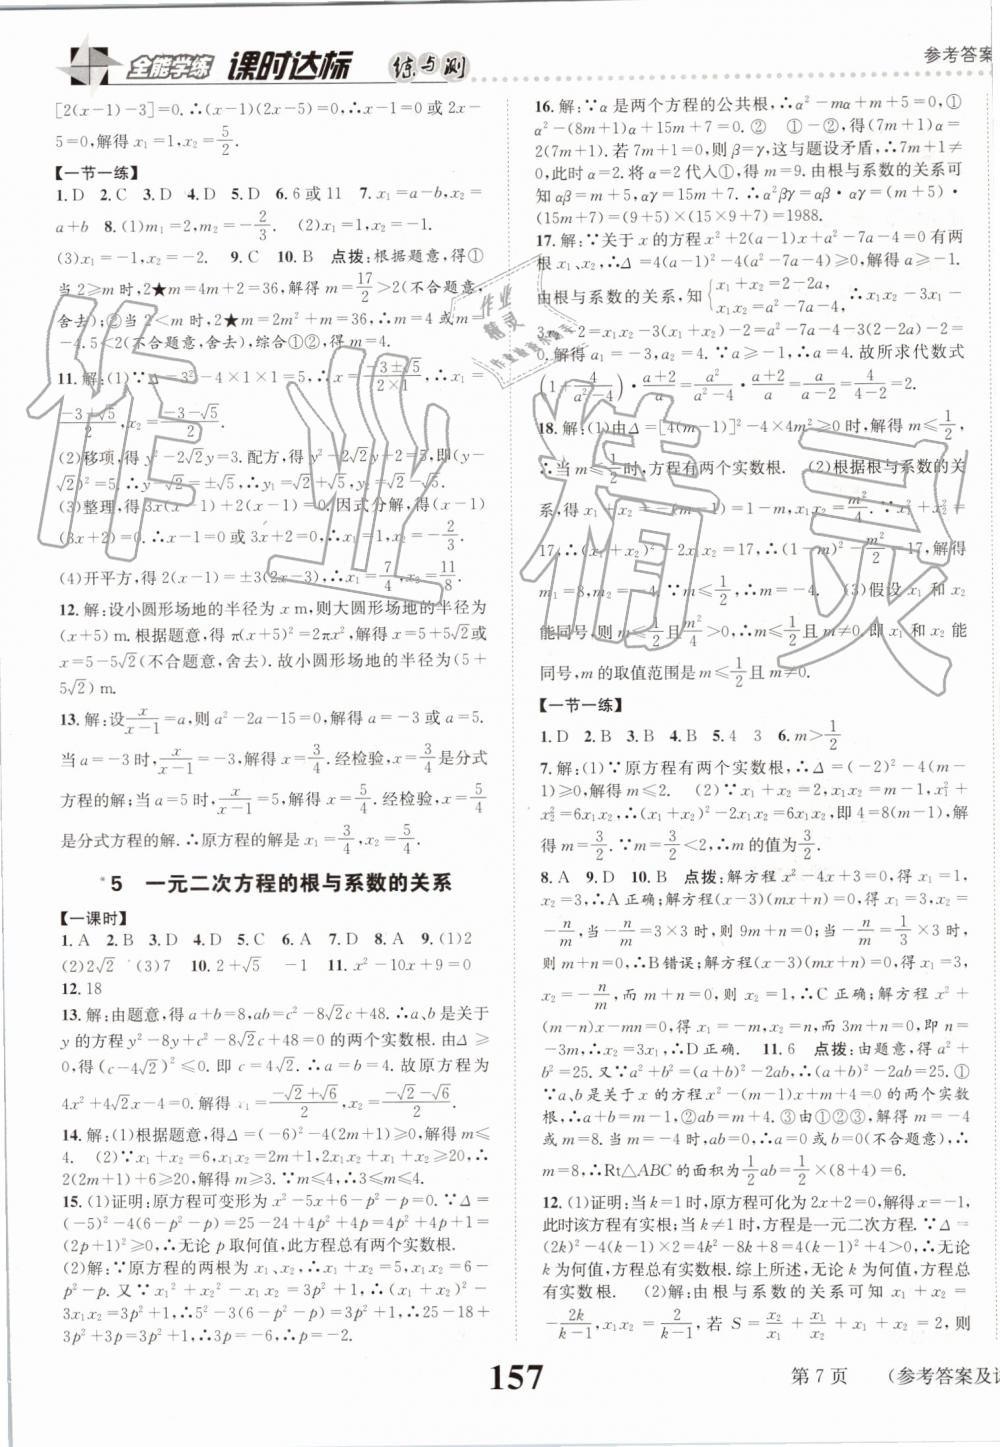 全能学练 课时达标 练与测
参考答案
[2(x-1)-3]=0.∴(x-1)(2x-5)=0.∴x-1=0或2x-
5=0,解得x₁=1,x₂=5/2.
【一节一练】
1.D 2.C 3.D 4.D 5.D 6.6或11 7.x₁=a-b,x₂=
a+b 8.(1)m₁=2,m₂=-2/3. (2)x₁=1,x₂=-1.
(3)x₁=-1,x₂=-2. 9.C 10.B 点拨:根据题意,得①
当2≥m时,2★m=4m+2=36,解得m=17/2>2(不合题意,
舍去);②当2<m时,2★m=2m²+m=36,解得m=4或m=
-4.5<2(不合题意,舍去),综合①②,得m=4.
11.解:(1)∵Δ=3²-4×1×1=5,∴x=(-3±√5)/(2×1),∴x₁=
(-3+√5)/2,x₂=(-3-√5)/2.
(2)移项,得y²-2√2y=3.配方,得y²-2√2y+2=5,即(y-
√2)²=5.∴y-√2=±√5,∴y₁=√2+√5,y₂=√2-√5.
(3)整理,得3x(x-1)+2(x-1)=0.因式分解,得(x-1)
(3x+2)=0.∴x-1=0或3x+2=0.∴x₁=1,x₂=-2/3.
(4)开平方,得2(x-1)=±3(2x-3).∴x₁=7/4,x₂=11/8.
12.解:设小圆形场地的半径为x m,则大圆形场地的半径为
(x+5) m.根据题意,得π(x+5)²=2πx²,解得x=5+5√2或
x=5-5√2(不合题意,舍去).故小圆形场地的半径为(5+
5√2) m.
13.解:设x/(x-1)=a,则a²-2a-15=0,解得a=-3或a=5.
当a=-3时,x/(x-1)=-3,解得x=3/4.经检验,x=3/4是分式
方程的解;当a=5时,x/(x-1)=5,解得x=5/4.经检验,x=5/4
是分式方程的解.∴原方程的解是x₁=3/4,x₂=5/4.
*5 一元二次方程的根与系数的关系
【一课时】
1.A 2.B 3.D 4.D 5.C 6.A 7.D 8.A 9.(1)2
(2)2√2 (3)7 10.2+√5 -1 11.x²-10x+9=0
12.18
13.解:由题意,得a+b=8,ab=c²-8√2c+48.∴a、b是关于
y的方程y²-8y+c²-8√2c+48=0的两个实数根.由Δ≥
0,得(c-4√2)²≤0.即c=4√2.∴a=b=4.故原方程为
4x²+4√2x-4=0.解得x₁=(-√2+√6)/2,x₂=(-√2-√6)/2.
14.解:(1)根据题意,得Δ=(-6)²-4(2m+1)≥0,解得m≤
4. (2)∵x₁+x₂=6,x₁x₂=2m+1,2x₁x₂+x₁+x₂≥20,∴
2(2m+1)+6≥20,解得m≥3.∴3≤m≤4.
15.(1)证明:原方程可变形为x²-5x+6-p²-p=0.∵Δ=
(-5)²-4(6-p²-p)=25-24+4p²+4p=4p²+4p+1=
(2p+1)²≥0,∴无论p取何值,此方程总有两个实数根.
(2)解:∵原方程的两根为x₁、x₂,∴x₁+x₂=5,x₁x₂=6-
p²-p.又∵x₁²+x₂²-x₁x₂=3p²+1,∴(x₁+x₂)²-
3x₁x₂=3p²+1,∴5²-3(6-p²-p)=3p²+1,∴25-18+
3p²+3p=3p²+1,∴3p=-6,∴p=-2.
16.解:∵α是两个方程的公共根,∴α²-mα+m+5=0,①
α²-(8m+1)α+15m+7=0.② ①-②,得(7m+1)α=
2(7m+1).若7m+1=0,则β=γ,这与题设矛盾,∴7m+1≠
0,此时α=2.将α=2代入①,得m=9.由根与系数的关系可
知αβ=m+5,αγ=15m+7.∴α²βγ=αβ·αγ=(m+5)·
(15m+7)=(9+5)×(15×9+7)=1988.
17.解:∵关于x的方程x²+2(a-1)x+a²-7a-4=0有两
根x₁、x₂,∴Δ=4(a-1)²-4(a²-7a-4)≥0,解得a≥-1.
由根与系数的关系,知{x₁+x₂=2-2a, x₁x₂=a²-7a-4,∴x₁x₂-3x₁-
3x₂-2=x₁x₂-3(x₁+x₂)-2=a²-7a-4-3(2-2a)-2=
0.解得a₁=-3,a₂=4.∵a≥-1,∴a=4.故所求代数式
(1+4/(a²-4))·(a+2)/a=a²/(a²-4)·(a+2)/a=a/(a-2)=4/(4-2)=2.
18.解:(1)由Δ=[4(m-1)]²-4×4m²≥0时,解得m≤1/2,
∴当m≤1/2时,方程有两个实数根. (2)根据根与系数的关
系,得x₁+x₂=-(m-1)=1-m,x₁x₂=m²/4.∵x₁²+x₂²=
17,∴(x₁+x₂)²-2x₁x₂=17,∴(1-m)²-m²/2=17,解得
m₁=8,m₂=-4.∵m≤1/2,∴m=-4. (3)假设x₁和x₂
能同号,则m≤1/2且m²/4>0,∴m≤1/2且m≠0.即x₁和x₂能
同号,m的取值范围是m≤1/2且m≠0.
【一节一练】
1.D 2.B 3.B 4.B 5.4 3 6.m>1/2
7.解:(1)∵原方程有两个实数根,∴Δ=(-2)²-4(m-
1)≥0,解得m≤2. (2)∵x₁+x₂=2,x₁x₂=m-1,x₁²+
x₂²=6x₁x₂,∴(x₁+x₂)²-2x₁x₂=6x₁x₂,即4=8(m-1),解
得m=3/2.∵m=3/2<2,∴m的值为3/2.
8.A 9.D 10.B 点拨:解方程x²-4x+3=0,得x₁=1,
x₂=3,∴A正确;解方程(x-3)(mx+n)=0,得x₁=3,x₂=
-n/m,当-n/m=3×3时,则9m+n=0;当-n/m=1/3×3时,
则m+n=0,∴B错误;解方程(x-3)(mx+n)=0,得x₁=3,
x₂=-n/m,而m+n=0,则x₂=1,∴C正确;解方程x²+
(m-n)x-mn=0,得x₁=-m,x₂=n,而3m+n=0,即n=
-3m,∴x₂=3x₁,∴D正确. 11.6 点拨:由题意,得a²+
b²=25.又∵a²+b²=(a+b)²-2ab,∴(a+b)²-2ab=25.①
∵a、b是关于x的方程x²-(m-1)x+m+4=0的两个实数
根,∴a+b=m-1,②ab=m+4.③由①②③,解得m=-4
或m=8.当m=-4时,ab=0,∴a=0或b=0(不合题意),∴
m=8,∴Rt△ABC的面积为1/2ab=1/2×(8+4)=6.
12.(1)证明:当k=1时,原方程可化为2x+2=0,解得x=-1,
此时该方程有实根;当k≠1时,方程是一元二次方程.∵Δ=
(2k)²-4(k-1)×2=4k²-8k+8=4(k-1)²+4>0,∴无论
k为何值,方程总有实数根.综上所述,无论k为何值,方程总
有实数根. (2)解:由根与系数的关系可知x₁+x₂=
-2k/(k-1),x₁x₂=2/(k-1),若S=x₂/x₁+x₁/x₂+x₁+x₂=2,则
157
第7页 (参考答案及
作业精灵